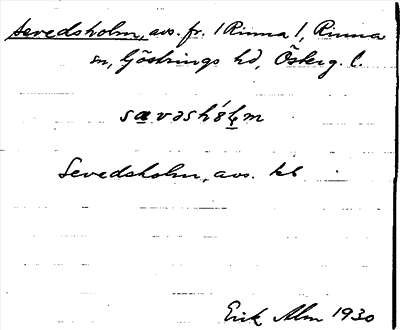 Sevedsholm, avs. fr. / Rinna /, Rinna
sn, Göstrings hd, Österg. l.
savəshólm
Sevedsholm, avs. kb
Erik Alm 1930